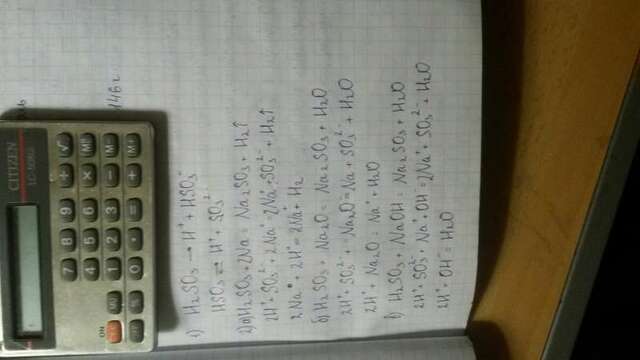 CITIZEN
LC-508
7 8 9 ÷ √
4 5 6 × M
ON
1 2 3 − M-
% 0 · = + M+
146 г
1) H₂SO₃ → H⁺ + HSO₃⁻
HSO₃ ⇌ H⁺ + SO₃²⁻
2) а) H₂SO₃ + 2Na = Na₂SO₃ + H₂↑
2H⁺ + SO₃²⁻ + 2Na⁰ = 2Na⁺ + SO₃²⁻ + H₂↑
2Na⁰ + 2H⁺ = 2Na⁺ + H₂
б) H₂SO₃ + Na₂O = Na₂SO₃ + H₂O
2H⁺ + SO₃²⁻ + Na₂O = Na + SO₃²⁻ + H₂O
2H⁺ + Na₂O = Na⁺ + H₂O
в) H₂SO₃ + NaOH = Na₂SO₃ + H₂O
2H⁺ + SO₃²⁻ + Na⁺ + OH⁻ = 2Na⁺ + SO₃²⁻ + H₂O
2H⁺ + OH⁻ = H₂O